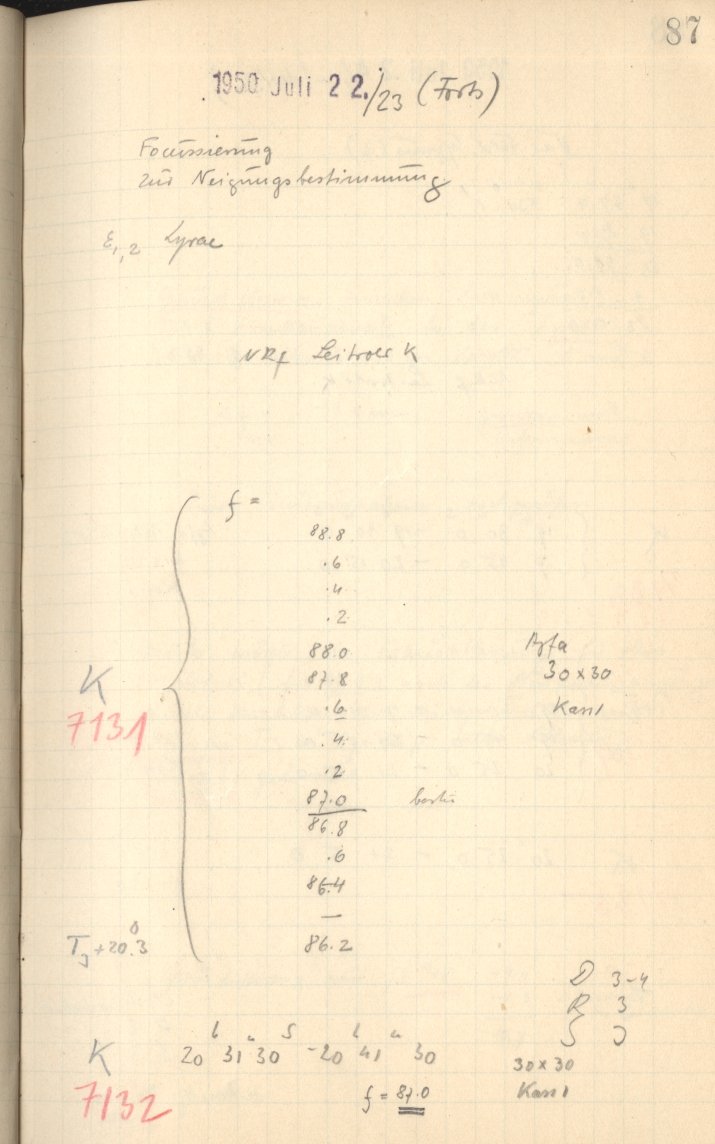 87
1950 Juli 22./23 (Forts)
Focussierung
zur Neigungsbestimmung
ε1,2 Lyrae
NRf Leitrohr K
f =
88.8
.6
.4
.2
88.0
87.8
.6
.4
.2
87.0
86.8
.6
86.4
—
86.2
K
7131
Agfa
30x30
T +20.3
D 3-4
R 3
S
K 20 h 31 m 30 s - 20 h 41 m 30
7132
30x30
f = 87.0